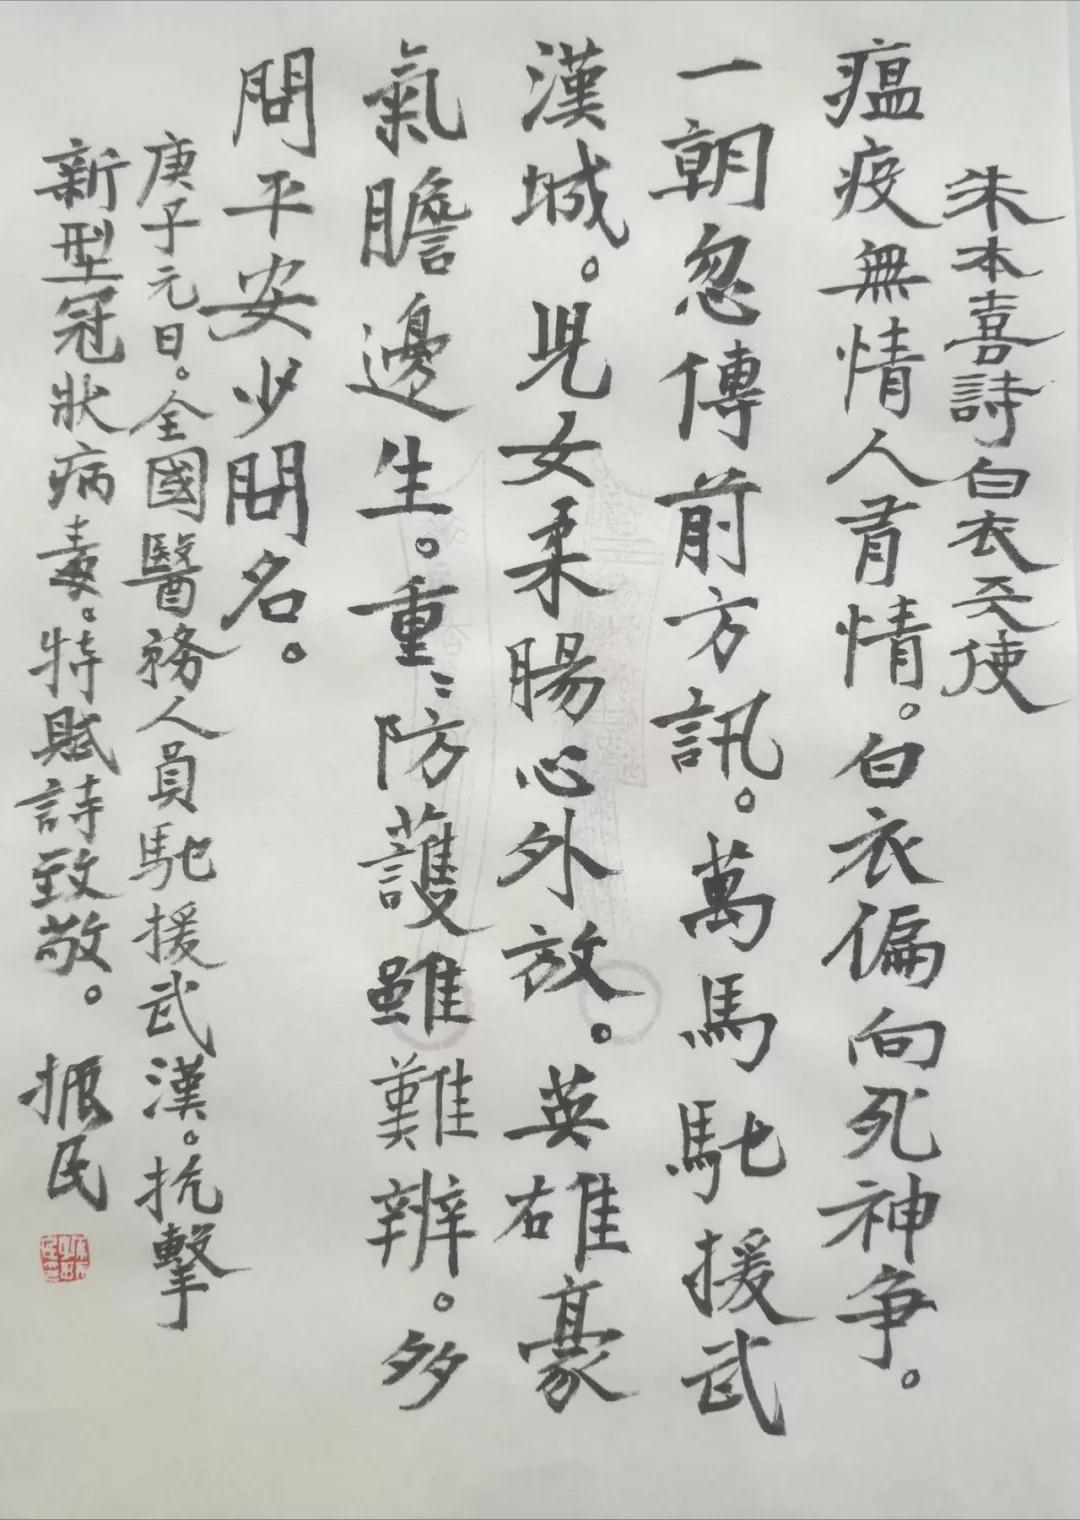 朱本喜詩白衣天使
瘟疫無情人有情。白衣偏向死神争。
一朝忽傳前方訊。萬馬馳援武
漢城。児女柔腸心外放。英雄豪
氣膽邊生。重〻防護雖難辨。多
問平安少問名。
庚子元日。全國醫務人員馳援武漢。抗擊
新型冠狀病毒。特賦詩致敬。振民